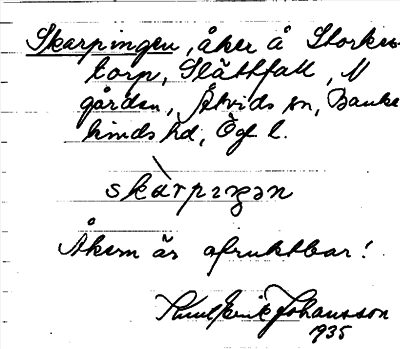 Skarpingen, åker å Storkes-
torp, Slättfall, N
gården, Åtvids sn, Banke-
kinds hd, Ög l.
skàrpıŋən
Åkern är ofruktbar!
Knut Erik Johansson
1935